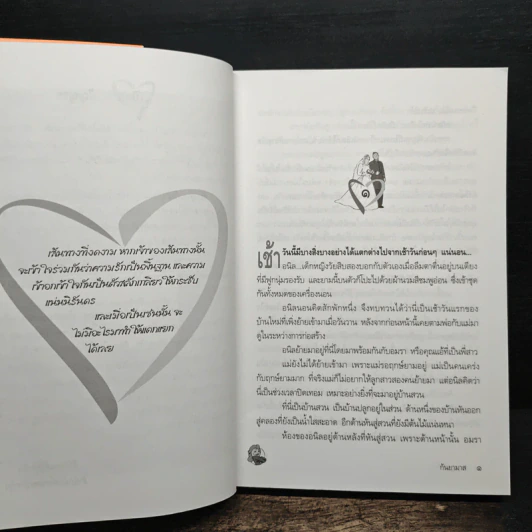 เส้นทางที่งดงาม หากเจ้าของเส้นทางนั้น
จะเข้าใจร่วมกันว่าความรักเป็นพื้นฐาน และความ
เข้าอกเข้าใจกันเป็นตัวสลักเกลียว ให้กระชับ
แน่นนิรันดร
และเมื่อเป็นเช่นนั้น จะ
ไม่มีอะไรมาทำให้แตกแยก
ได้เลย
๑
เช้า วันนี้มีบางสิ่งบางอย่างได้แตกต่างไปจากเช้าวันก่อนๆ แน่นอน...
อนิล...เด็กหญิงวัยสิบสองบอกกับตัวเองเมื่อลืมตาตื่นอยู่บนเตียง
ที่มีฟูกนุ่มรองรับ และยามนี้บนตัวก็โปะไปด้วยผ้านวมสีชมพูอ่อน ซึ่งเข้าชุด
กันทั้งหมดของเครื่องนอน
อนิลนอนคิดสักพักหนึ่ง จึงทบทวนได้ว่านี่เป็นเช้าวันแรกของ
บ้านใหม่ที่เพิ่งย้ายเข้ามาเมื่อวันวาน หลังจากก่อนหน้านี้เคยตามพ่อกับแม่มา
ดูในระหว่างการก่อสร้าง
อนิลย้ายมาอยู่ที่นี่โดยมาพร้อมกันกับอมรา หรือคุณแอ้ที่เป็นพี่สาว
แม่ยังไม่ได้ย้ายเข้ามา เพราะแม่รอฤกษ์ยามอยู่ แม่เป็นคนเคร่ง
กับฤกษ์ยามมาก ที่จริงแม่ก็ไม่อยากให้ลูกสาวสองคนย้ายมา แต่อนิลคิดว่า
นี่เป็นช่วงเวลาปิดเทอม เหมาะอย่างยิ่งที่จะมาอยู่บ้านสวน
ที่นี่เป็นบ้านสวน เป็นบ้านปลูกอยู่ในสวน ด้านหนึ่งของบ้านหันออก
สู่คลองที่ยังเป็นน้ำใสสะอาด อีกด้านหันสู่สวนที่ยังมีต้นไม้แน่นหนา
ห้องของอนิลอยู่ด้านหลังที่หันสู่สวน เพราะด้านหน้านั้น อมรา
กันยามาส ๑